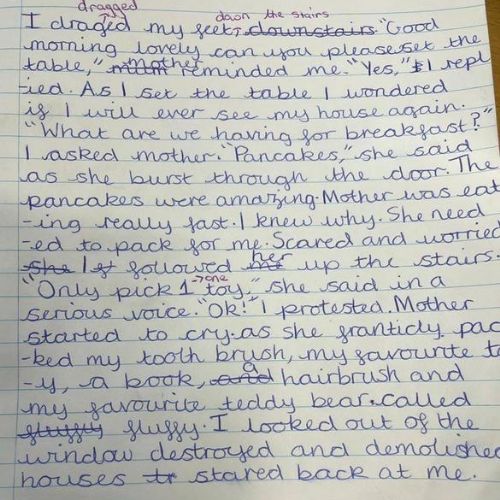 dragged
I draged my feet down the stairs downstairs. "Good
morning lovely can you please set the
table," mum mother reminded me. "Yes," I repl
-ied. As I set the table I wondered
if I will ever see my house again.
"What are we having for breakfast?"
I asked mother. "Pancakes," she said
as she burst through the door. The
pancakes were amazing. Mother was eat
-ing really fast. I knew why. She need
-ed to pack for me. Scared and worried
she I followed her up the stairs.
"Only pick 1 → one toy," she said in a
serious voice. "Ok!" I protested. Mother
started to cry. as she franticly pac
-ked my tooth brush, my favourite to
-y, a book, and a hairbrush and
my favourite teddy bear. called
fluffy fluffy. I looked out of the
window destroyed and demolished
houses tr stared back at me.